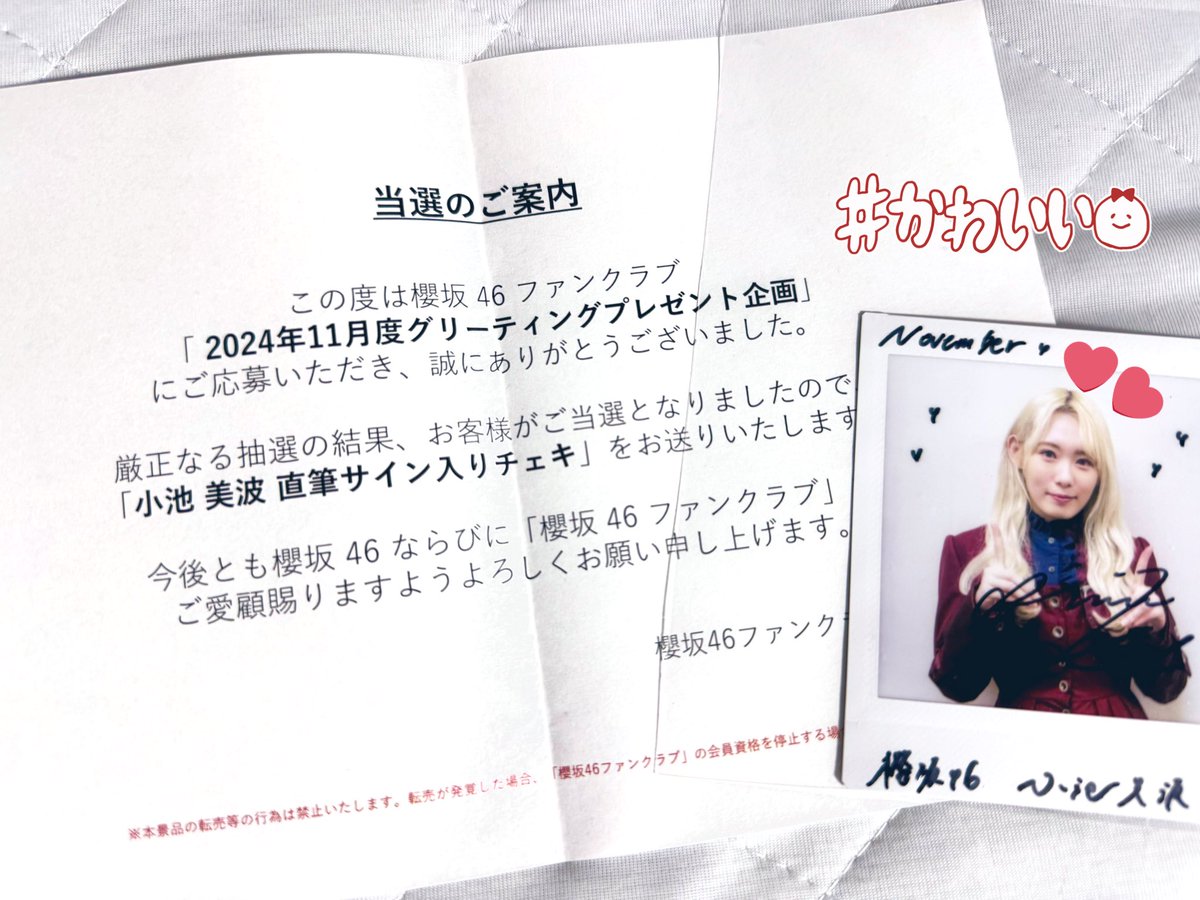 当選のご案内
この度は櫻坂 46 ファンクラブ
「 2024年11月度グリーティングプレゼント企画」
にご応募いただき、誠にありがとうございました。
厳正なる抽選の結果、お客様がご当選となりましたので
「小池 美波 直筆サイン入りチェキ」をお送りいたします
今後とも櫻坂 46 ならびに「櫻坂 46 ファンクラブ」
ご愛顧賜りますようよろしくお願い申し上げます。
櫻坂46ファンク
※本景品の転売等の行為は禁止いたします。転売が発覚した場合、「櫻坂46ファンクラブ」の会員資格を停止する場
#かわいい
November
櫻坂46